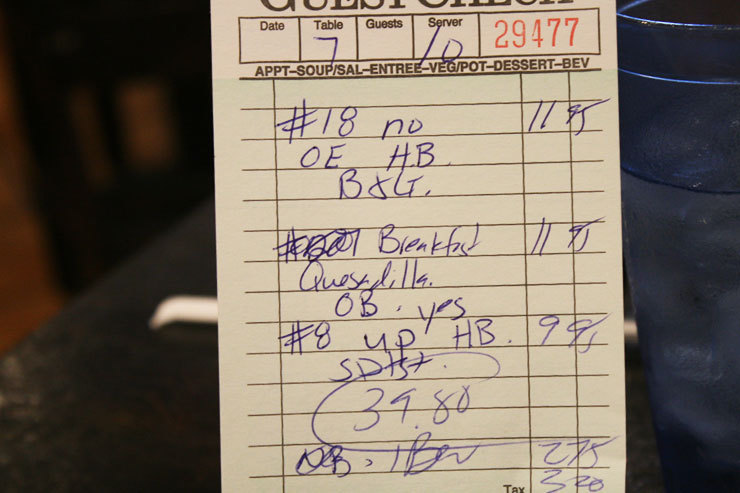 GUEST CHECK
Date Table Guests Server 29477
7 10
APPT–SOUP/SAL–ENTREE–VEG/POT–DESSERT–BEV
#18 no 11 95
OE H.B.
B&G.
Breakfast 11 95
Quesadilla.
OB. yes
#8 up HB. 9 95
39.80
NB. 1 Bev 2 75
Tax 3 20